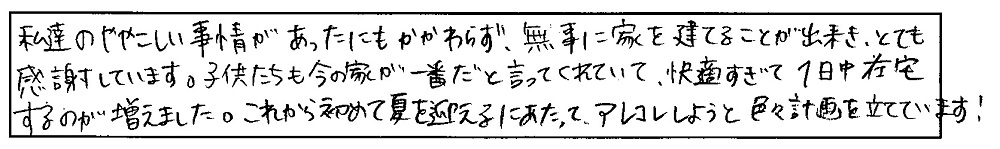 私達のややこしい事情があったにもかかわらず、無事に家を建てることが出来き、とても
感謝しています。子供たちも今の家が一番だと言ってくれていて、快適すぎて1日中在宅
するのが増えました。これから初めて夏を迎えるにあたって、アレコレしようと色々計画を立てています!